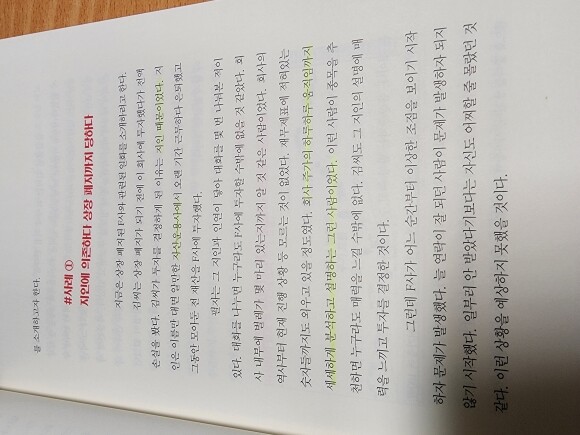 를 소개하고자 한다.
#사례 ①
지인에 의존하다 상장 폐지까지 당하다
지금은 상장 폐지된 F사와 관련된 일화를 소개하려고 한다.
김씨는 상장 폐지가 되기 전에 이 회사에 투자했다가 전액
손실을 봤다. 김씨가 투자를 결정하게 된 이유는 지인 때문이었다. 지
인은 이름만 대면 알만한 자산운용사에서 오랜 기간 근무하다 은퇴했고
그동안 모아둔 전 재산을 F사에 투자했다.
필자는 그 지인과 인연이 닿아 대화를 몇 번 나눠본 적이
있다. 대화를 나누면 누구라도 F사에 투자할 수밖에 없을 것 같았다. 회
사 내부에 벌레가 몇 마리 있는지까지 알 것 같은 사람이었다. 회사의
역사부터 현재 진행 상황 등 모르는 것이 없었다. 재무제표에 적혀있는
숫자들까지도 외우고 있을 정도였다. 회사 주가의 하루하루 움직임까지
세세하게 분석하고 설명하는 그런 사람이었다. 이런 사람이 종목을 추
천하면 누구라도 매력을 느낄 수밖에 없다. 김씨도 그 지인의 설명에 매
력을 느끼고 투자를 결정한 것이다.
그런데 F사가 어느 순간부터 이상한 조짐을 보이기 시작
하자 문제가 발생했다. 늘 연락이 잘 되던 사람이 문제가 발생하자 되지
않기 시작했다. 일부러 안 받았다기보다는 자신도 어찌할 줄 몰랐던 것
같다. 이런 상황을 예상하지 못했을 것이다.